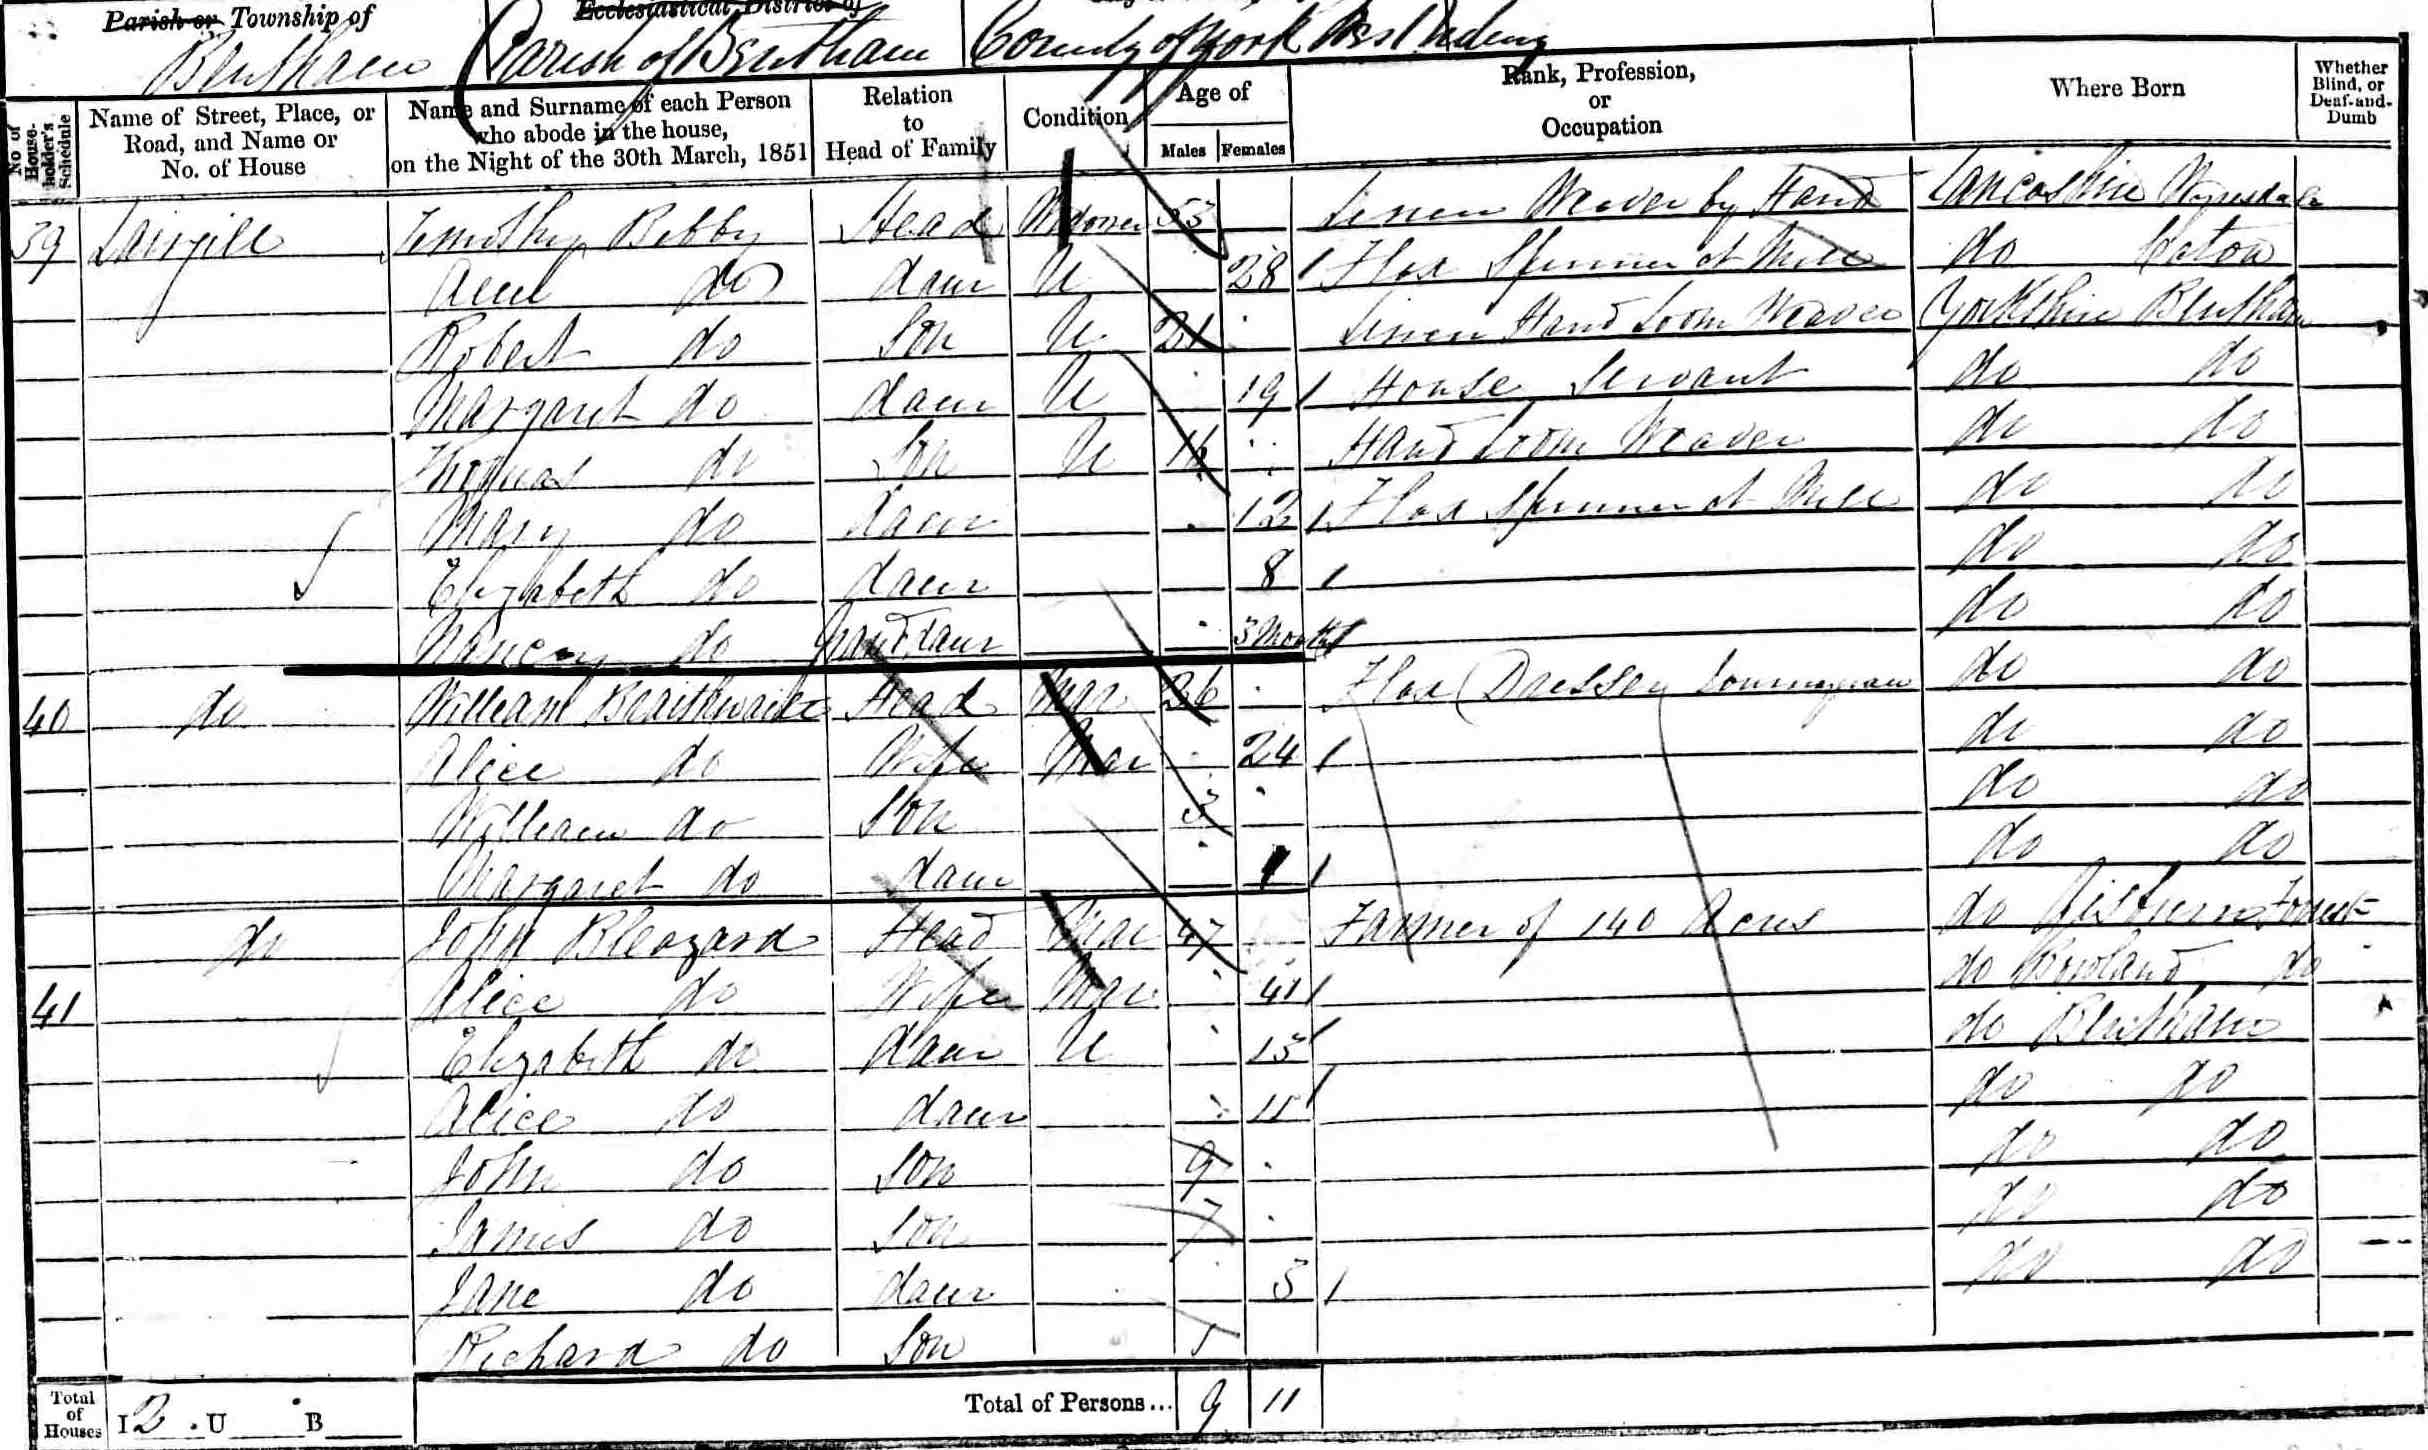 Parish or Township of Ecclesiastical District of
Bentham Parish of Bentham County of York West Riding
No of House-holder's Schedule
Name of Street, Place, or Road, and Name or No. of House
Name and Surname of each Person who abode in the house, on the Night of the 30th March, 1851
Relation to Head of Family
Condition
Age of
Males Females
Rank, Profession, or Occupation
Where Born
Whether Blind, or Deaf-and-Dumb
39 Lairgill Timothy Bibby Head Widower 53 Linen Weaver by Hand Lancashire Wyresdale
do daur U 28 Flax Spinner at Mill do Caton
Robert do Son U 21 Linen Hand Loom Weaver Yorkshire Bentham
Margaret do daur U 19 House Servant do do
Thomas do Son U 16 Hand Loom Weaver do do
Mary do daur 12 Flax Spinner at Mill do do
Elizabeth do daur 8 do do
Nancy do Grand daur 3 Months do do
40 do William Braithwaite Head Mar 26 Flax Dresser Journeyman do do
Alice do Wife Mar 24 do do
William do Son 3 do do
Margaret do daur 1 do do
do John Bleazard Head Mar 47 Farmer of 140 Acres do Gisburn Forest
41 Alice do Wife Mar 41 do Bowland do
Elizabeth do daur U 13 do Bentham
Alice do daur 11 do do
John do Son 9 do do
James do Son 7 do do
Jane do daur 3 do do
Richard do Son 1
Total of Houses I 2 . U B Total of Persons... 9 11